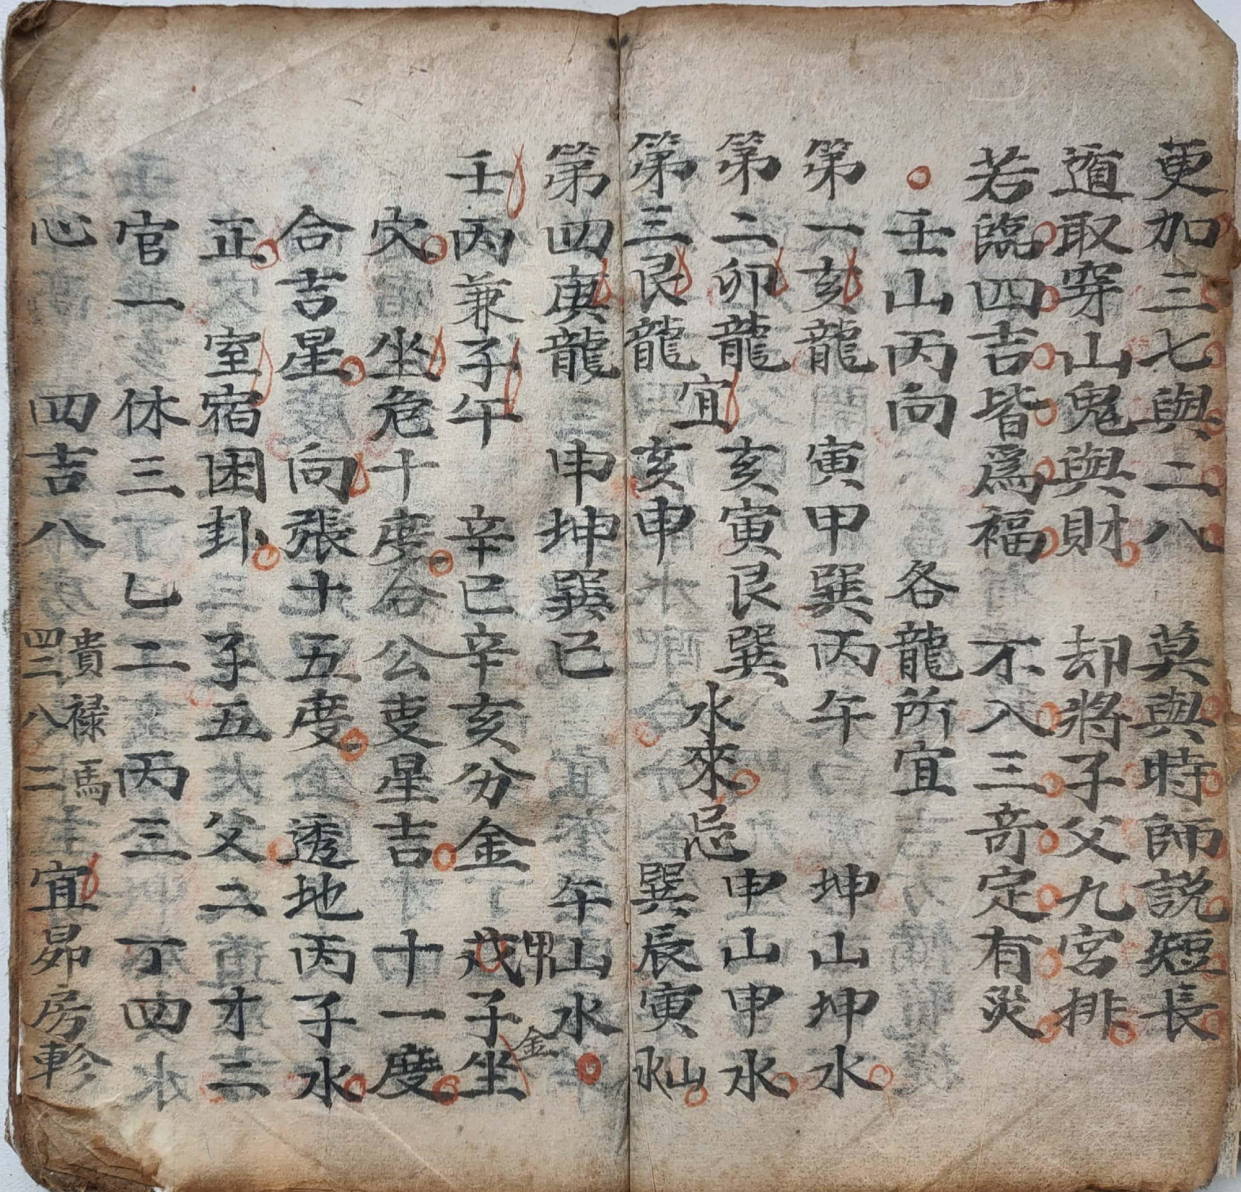 更加三七與二八　莫與時師説短長
遁取穿山鬼與財　却將子父九宮排
若臨四吉皆爲福　不入三奇定有災
壬山丙向　各龍所宜
第一亥龍　寅甲巽丙午　坤山坤水
第二卯龍　亥寅艮巽　申山申水
宜　水來　忌
第三艮龍　亥申　巽辰寅山水
第四庚龍　申坤巽巳　午山水
壬丙兼子午　辛巳辛亥分金　甲子金坐
穴　坐危十度合公吏星吉　十一度
合吉星　向張十五度　透地丙子水
正　室宿困卦　子五父二才三
官一　休三丁乜二丙三丁四
心　四吉八　貴禄馬　四二八二　宜昴房軫